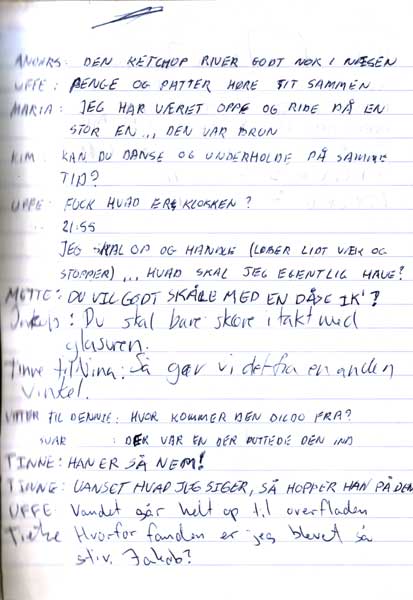 ANDERS: DEN KETCHUP RIVER GODT NOK I NÆSEN
UFFE: PENGE OG PATTER HØRE TIT SAMMEN
MARIA: JEG HAR VÆRET OPPE OG RIDE PÅ EN
STOR EN... DEN VAR BRUN
KIM: KAN DU DANSE OG UNDERHOLDE PÅ SAMME
TID?
UFFE: FUCK HVAD ER KLOKKEN?
21:55
JEG SKAL OP OG HANDLE (LØBER LIDT VÆK OG
STOPPER)... HVAD SKAL JEG EGENTLIG HAVE?
METTE: DU VIL GODT SKÅLE MED EN DÅSE IK'?
Du skal bare skære i takt med
glasuren.
Tinne til Nina: Så gør vi det fra en anden
vinkel.
VIKTOR TIL DENNIE: HVOR KOMMER DEN DILDO FRA?
SVAR: DER VAR EN DER PUTTEDE DEN IND
TINNE: HAN ER SÅ NEM!
TINNE: UANSET HVAD JEG SIGER, SÅ HOPPER HAN PÅ DEN
UFFE: Vandet går helt op til overfladen
Hvorfor fanden er jeg blevet så
stiv Jakob?